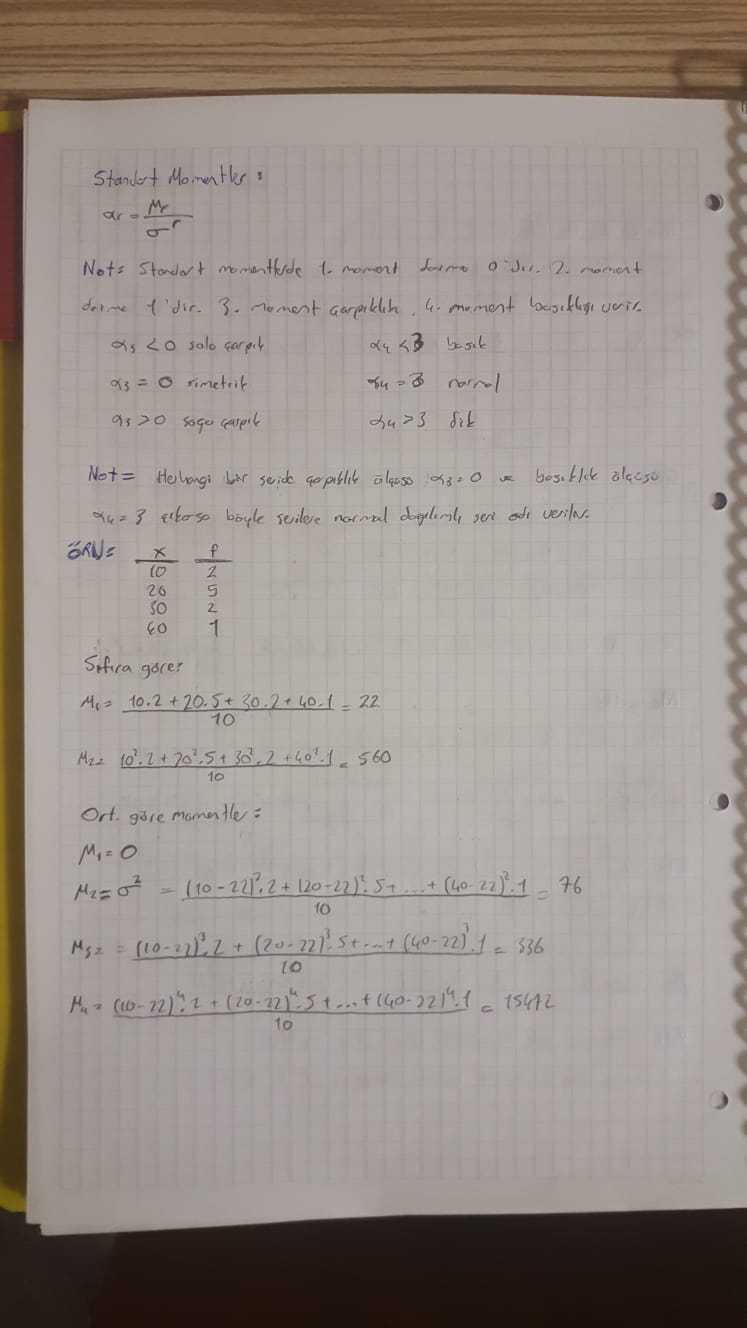 Standart Momentler:
αr = Mr / σ^r
Not= Standart momentlerde 1. moment daima 0'dır. 2. moment
daima 1'dir. 3. moment çarpıklık, 4. moment basıklığı verir.
α3 < 0 sola çarpık α4 < 3 basık
α3 = 0 simetrik α4 = 3 normal
α3 > 0 sağa çarpık α4 > 3 dik
Not= Herhangi bir seride çarpıklık ölçüsü α3 = 0 ve basıklık ölçüsü
α4 = 3 çıkarsa böyle serilere normal dağılımlı seri adı verilir.
ÖRN= x f
10 2
20 5
30 2
40 1
Sıfıra göre:
M1 = (10.2 + 20.5 + 30.2 + 40.1) / 10 = 22
M2 = (10².2 + 20².5 + 30².2 + 40².1) / 10 = 560
Ort. göre momentler=
M1 = 0
M2 = σ² = ((10-22)².2 + (20-22)².5 + ... + (40-22)².1) / 10 = 76
M3 = ((10-22)³.2 + (20-22)³.5 + ... + (40-22)³.1) / 10 = 336
M4 = ((10-22)⁴.2 + (20-22)⁴.5 + ... + (40-22)⁴.1) / 10 = 15472